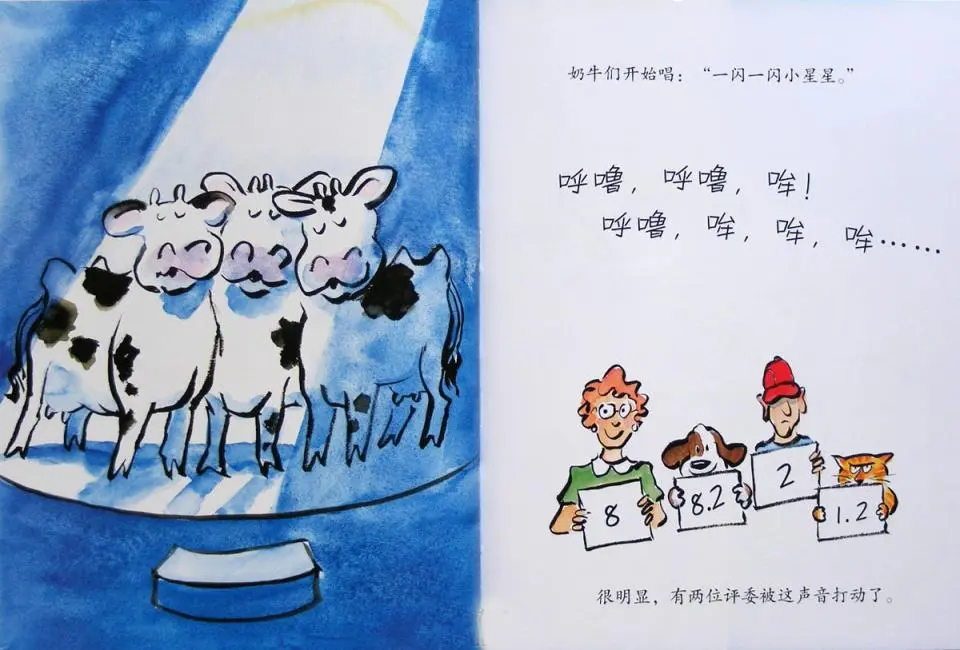 奶牛们开始唱：“一闪一闪小星星。”
呼噜，呼噜，哞！
呼噜，哞，哞，哞……
8
8.2
2
1.2
很明显，有两位评委被这声音打动了。